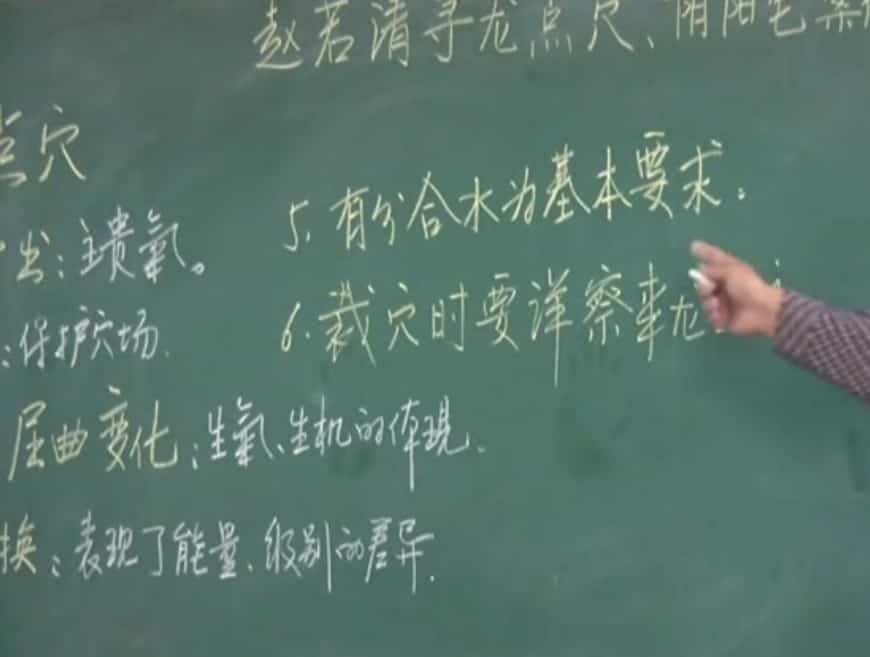 赵若清寻龙点穴、阴阳宅
点穴
出：主贵氣。
：保护穴场.
屈曲变化：生氣、生机的体现.
换：表现了能量、级别的差异.
5. 有分合水为基本要求：
6. 裁穴时要详察来龙